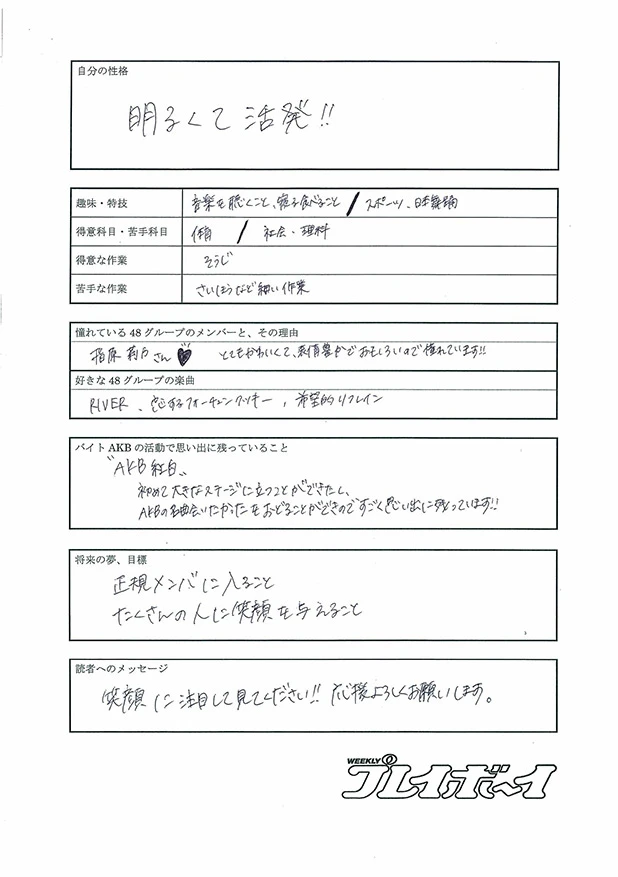 自分の性格
明るくて活発!!
趣味・特技
音楽を聴くこと、寝る食べること / スポーツ、日本舞踊
得意科目・苦手科目
体育 / 社会・理科
得意な作業
そうじ
苦手な作業
さいほうなど細い作業
憧れている48グループのメンバーと、その理由
指原莉乃さん♥ とてもかわいくて、表情豊かでおもしろいので憧れています!!
好きな48グループの楽曲
RIVER、恋するフォーチュンクッキー, 希望的リフレイン
バイトAKBの活動で思い出に残っていること
"AKB紅白"
初めて大きなステージに立つことができたし、
AKBの名曲会いたかったをおどることができのですごく思い出に残っています!!
将来の夢、目標
正規メンバに入ること
たくさんの人に笑顔を与えること
読者へのメッセージ
笑顔に注目して見てください!! 応援よろしくお願いします。
WEEKLY
プレイボーイ